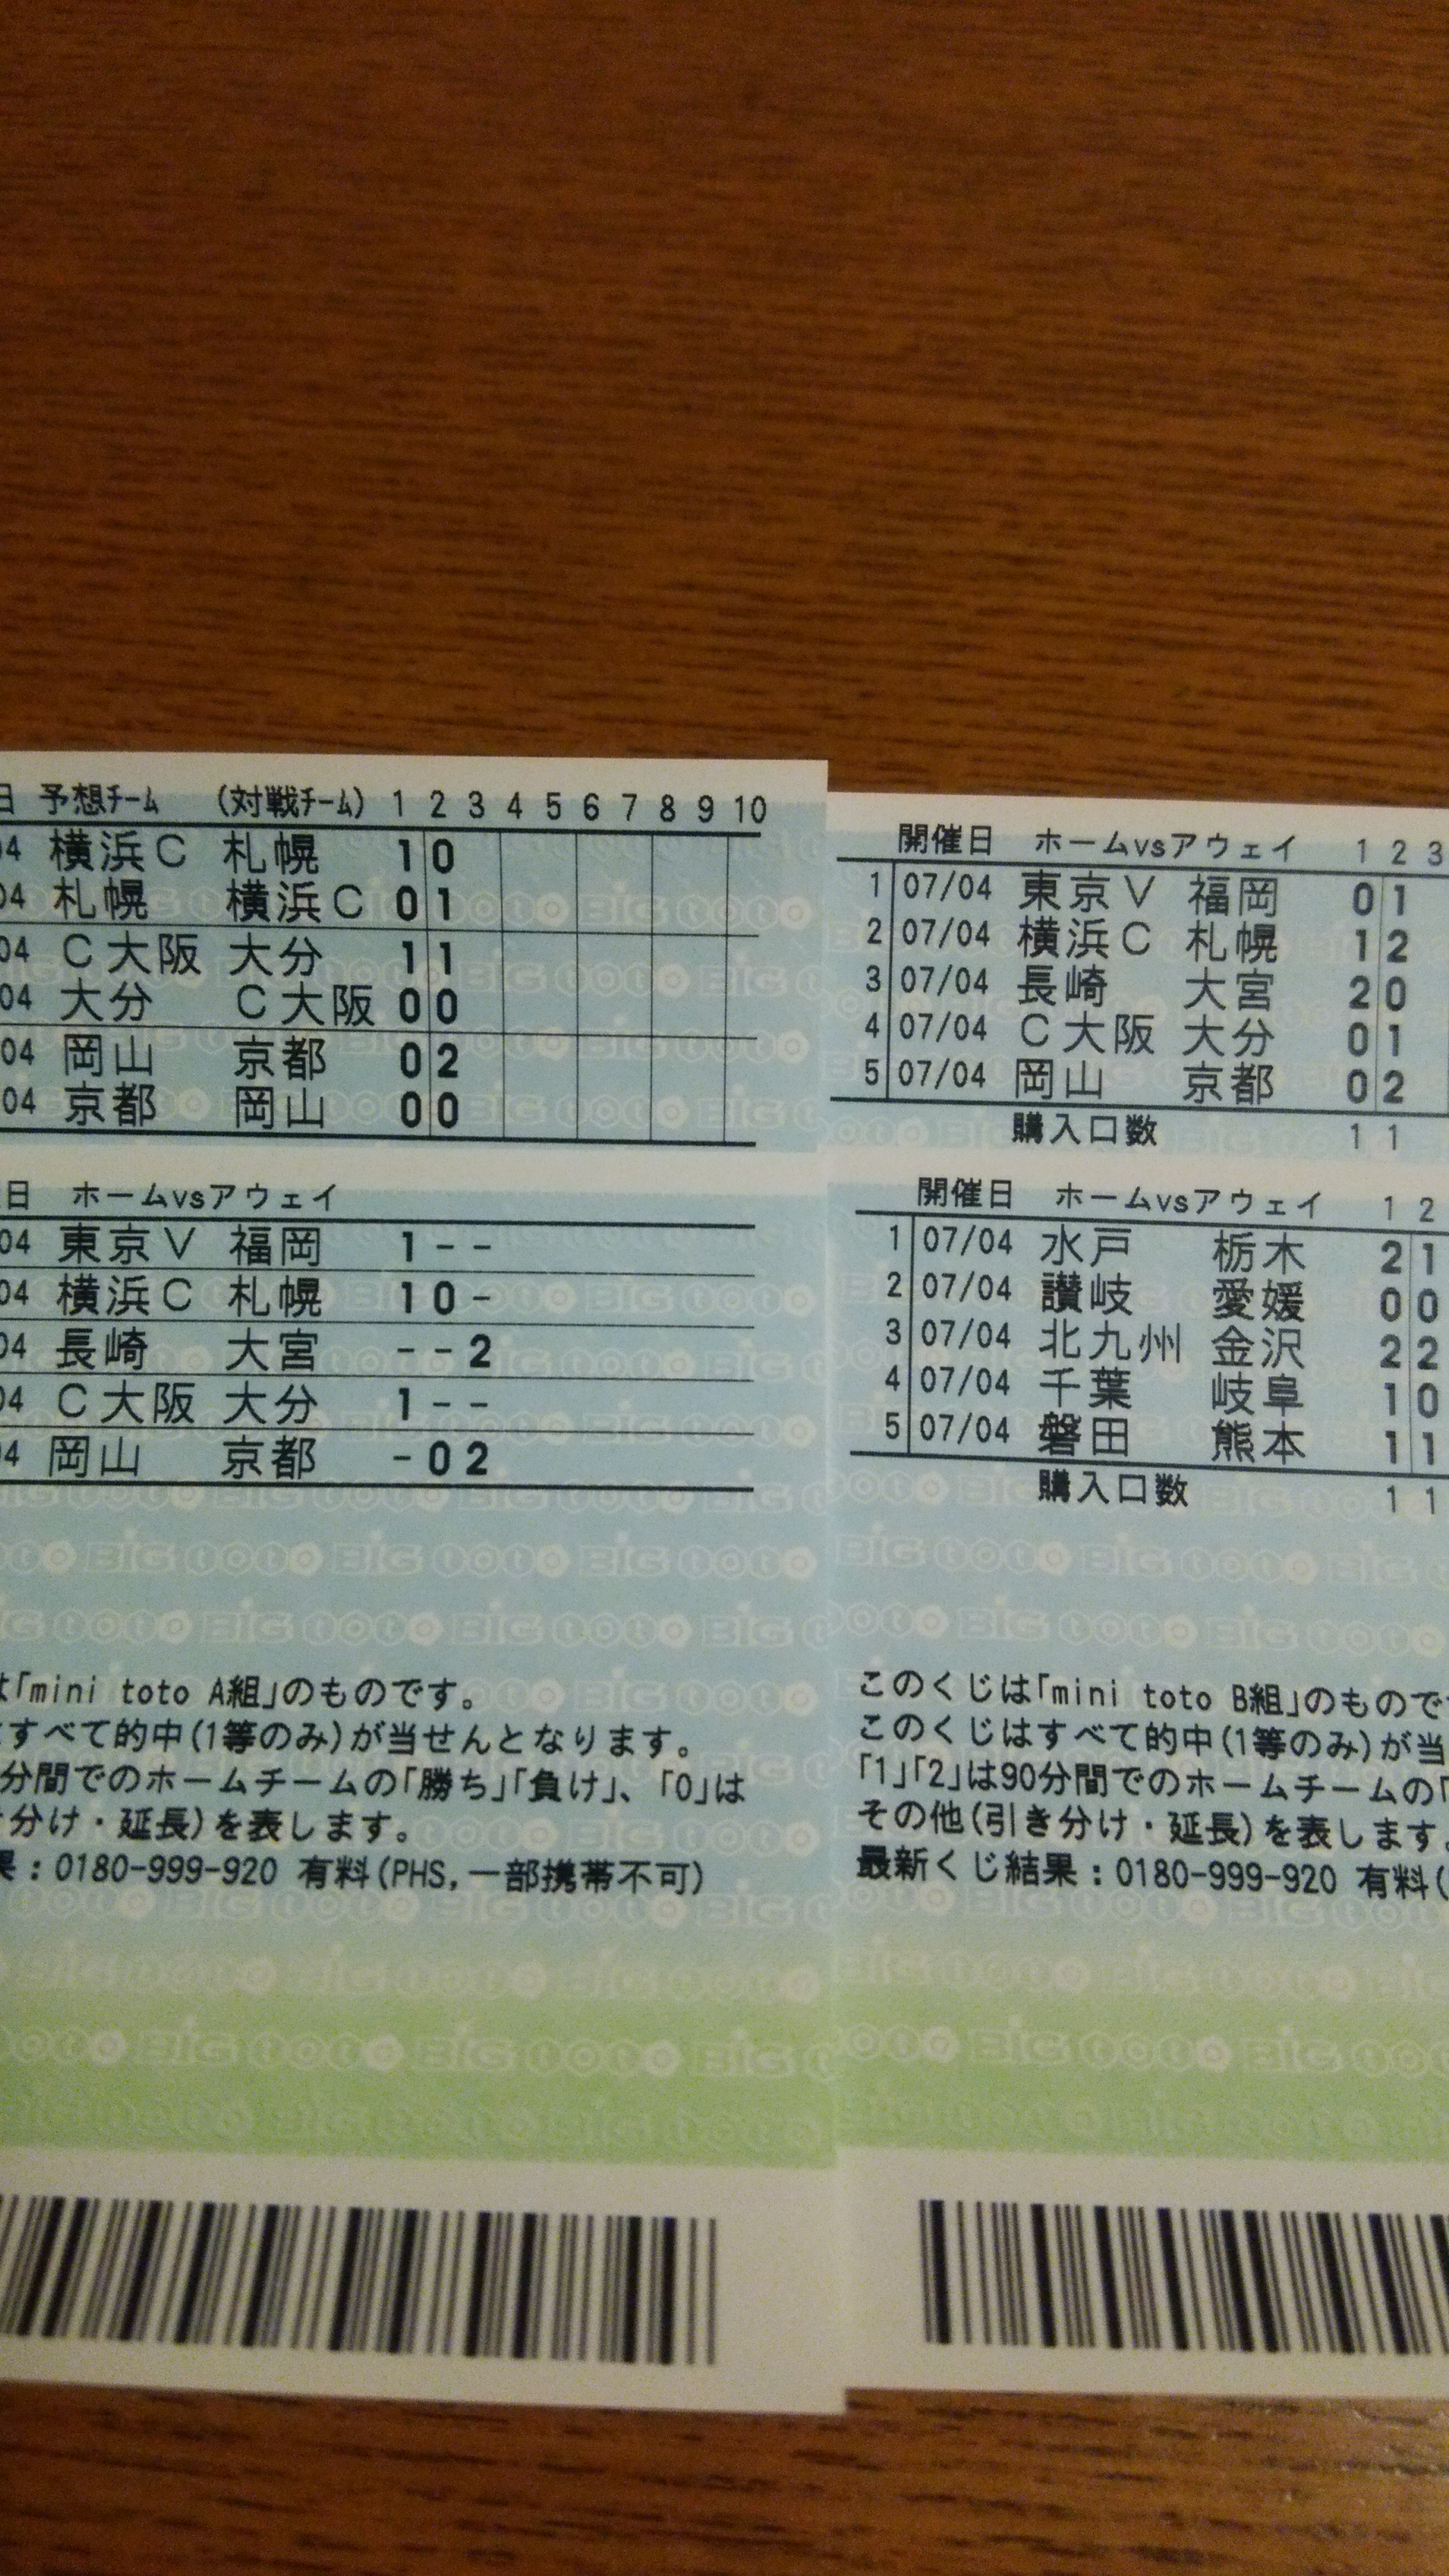 日 予想ﾁｰﾑ (対戦ﾁｰﾑ) 1 2 3 4 5 6 7 8 9 10
04 横浜C 札幌 1 0
04 札幌 横浜C 0 1
04 C大阪 大分 1 1
04 大分 C大阪 0 0
04 岡山 京都 0 2
04 京都 岡山 0 0
日 ホームvsアウェイ
04 東京V 福岡 1 - -
04 横浜C 札幌 1 0 -
04 長崎 大宮 - - 2
04 C大阪 大分 1 - -
04 岡山 京都 - 0 2
は「mini toto A組」のものです。
すべて的中(1等のみ)が当せんとなります。
分間でのホームチームの「勝ち」「負け」、「0」は
分け・延長)を表します。
果:0180-999-920 有料(PHS,一部携帯不可)
開催日 ホームvsアウェイ 1 2 3
1 07/04 東京V 福岡 0 1
2 07/04 横浜C 札幌 1 2
3 07/04 長崎 大宮 2 0
4 07/04 C大阪 大分 0 1
5 07/04 岡山 京都 0 2
購入口数 1 1
開催日 ホームvsアウェイ 1 2
1 07/04 水戸 栃木 2 1
2 07/04 讃岐 愛媛 0 0
3 07/04 北九州 金沢 2 2
4 07/04 千葉 岐阜 1 0
5 07/04 磐田 熊本 1 1
購入口数 1 1
このくじは「mini toto B組」のもので
このくじはすべて的中(1等のみ)が当
「1」「2」は90分間でのホームチームの「
その他(引き分け・延長)を表します。
最新くじ結果:0180-999-920 有料(